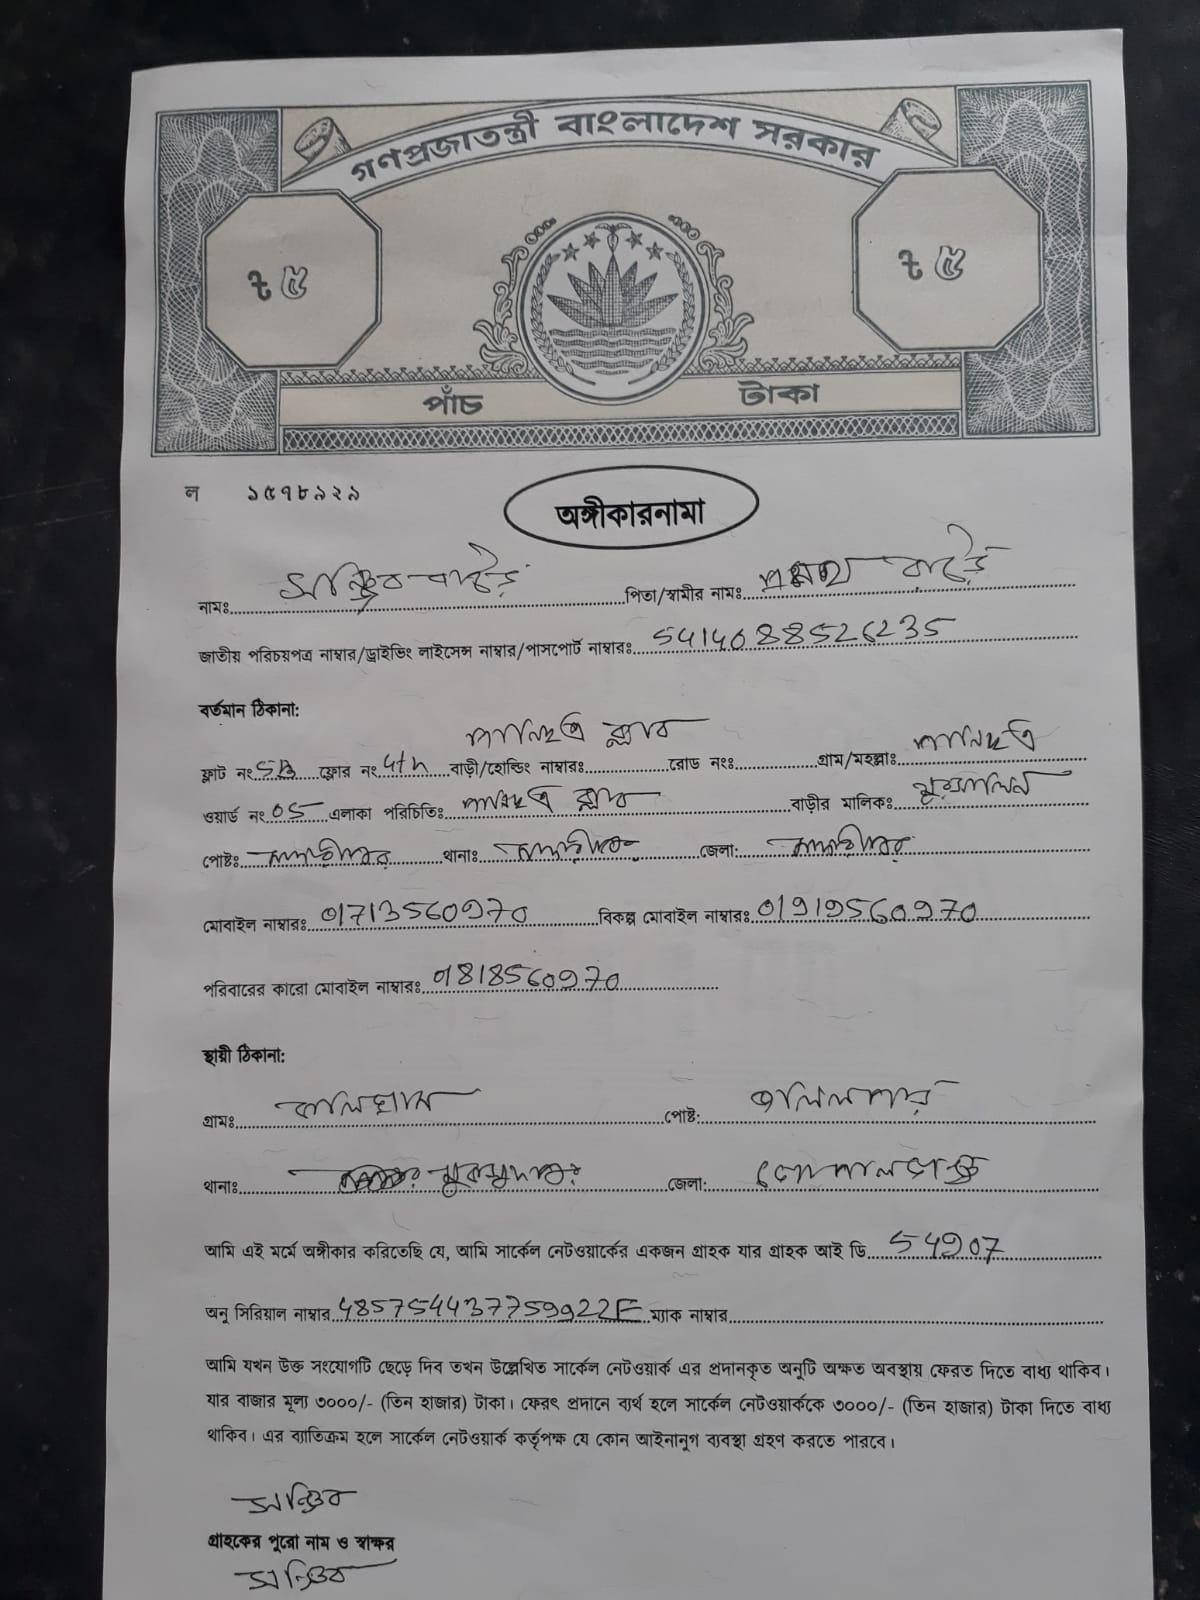 গণপ্রজাতন্ত্রী বাংলাদেশ সরকার
ট ৫ ট ৫
পাঁচ টাকা
ল ১৫৭৮৯২৯
অঙ্গীকারনামা
নামঃ পিতা/স্বামীর নামঃ
জাতীয় পরিচয়পত্র নাম্বার/ড্রাইভিং লাইসেন্স নাম্বার/পাসপোর্ট নাম্বারঃ 5414088526235
বর্তমান ঠিকানা:
ফ্লাট নং 5B ফ্লোর নং 4th বাড়ী/হোল্ডিং নাম্বারঃ রোড নংঃ গ্রাম/মহল্লাঃ
ওয়ার্ড নং 05 এলাকা পরিচিতিঃ বাড়ীর মালিকঃ
পোষ্টঃ মাদারীপুর থানাঃ মাদারীপুর জেলা: মাদারীপুর
মোবাইল নাম্বারঃ 01713560970 বিকল্প মোবাইল নাম্বারঃ 01919560970
পরিবারের কারো মোবাইল নাম্বারঃ 01818560970
স্থায়ী ঠিকানা:
গ্রামঃ পোষ্ট: জলিলপাড়
থানাঃ মুকসুদপুর জেলা: গোপালগঞ্জ
আমি এই মর্মে অঙ্গীকার করিতেছি যে, আমি সার্কেল নেটওয়ার্কের একজন গ্রাহক যার গ্রাহক আই ডি 54907
অনু সিরিয়াল নাম্বার 485754437759922E ম্যাক নাম্বার
আমি যখন উক্ত সংযোগটি ছেড়ে দিব তখন উল্লেখিত সার্কেল নেটওয়ার্ক এর প্রদানকৃত অনুটি অক্ষত অবস্থায় ফেরত দিতে বাধ্য থাকিব।
যার বাজার মূল্য ৩০০০/- (তিন হাজার) টাকা। ফেরৎ প্রদানে ব্যর্থ হলে সার্কেল নেটওয়ার্ককে ৩০০০/- (তিন হাজার) টাকা দিতে বাধ্য
থাকিব। এর ব্যতিক্রম হলে সার্কেল নেটওয়ার্ক কর্তৃপক্ষ যে কোন আইনানুগ ব্যবস্থা গ্রহণ করতে পারবে।
গ্রাহকের পুরো নাম ও স্বাক্ষর